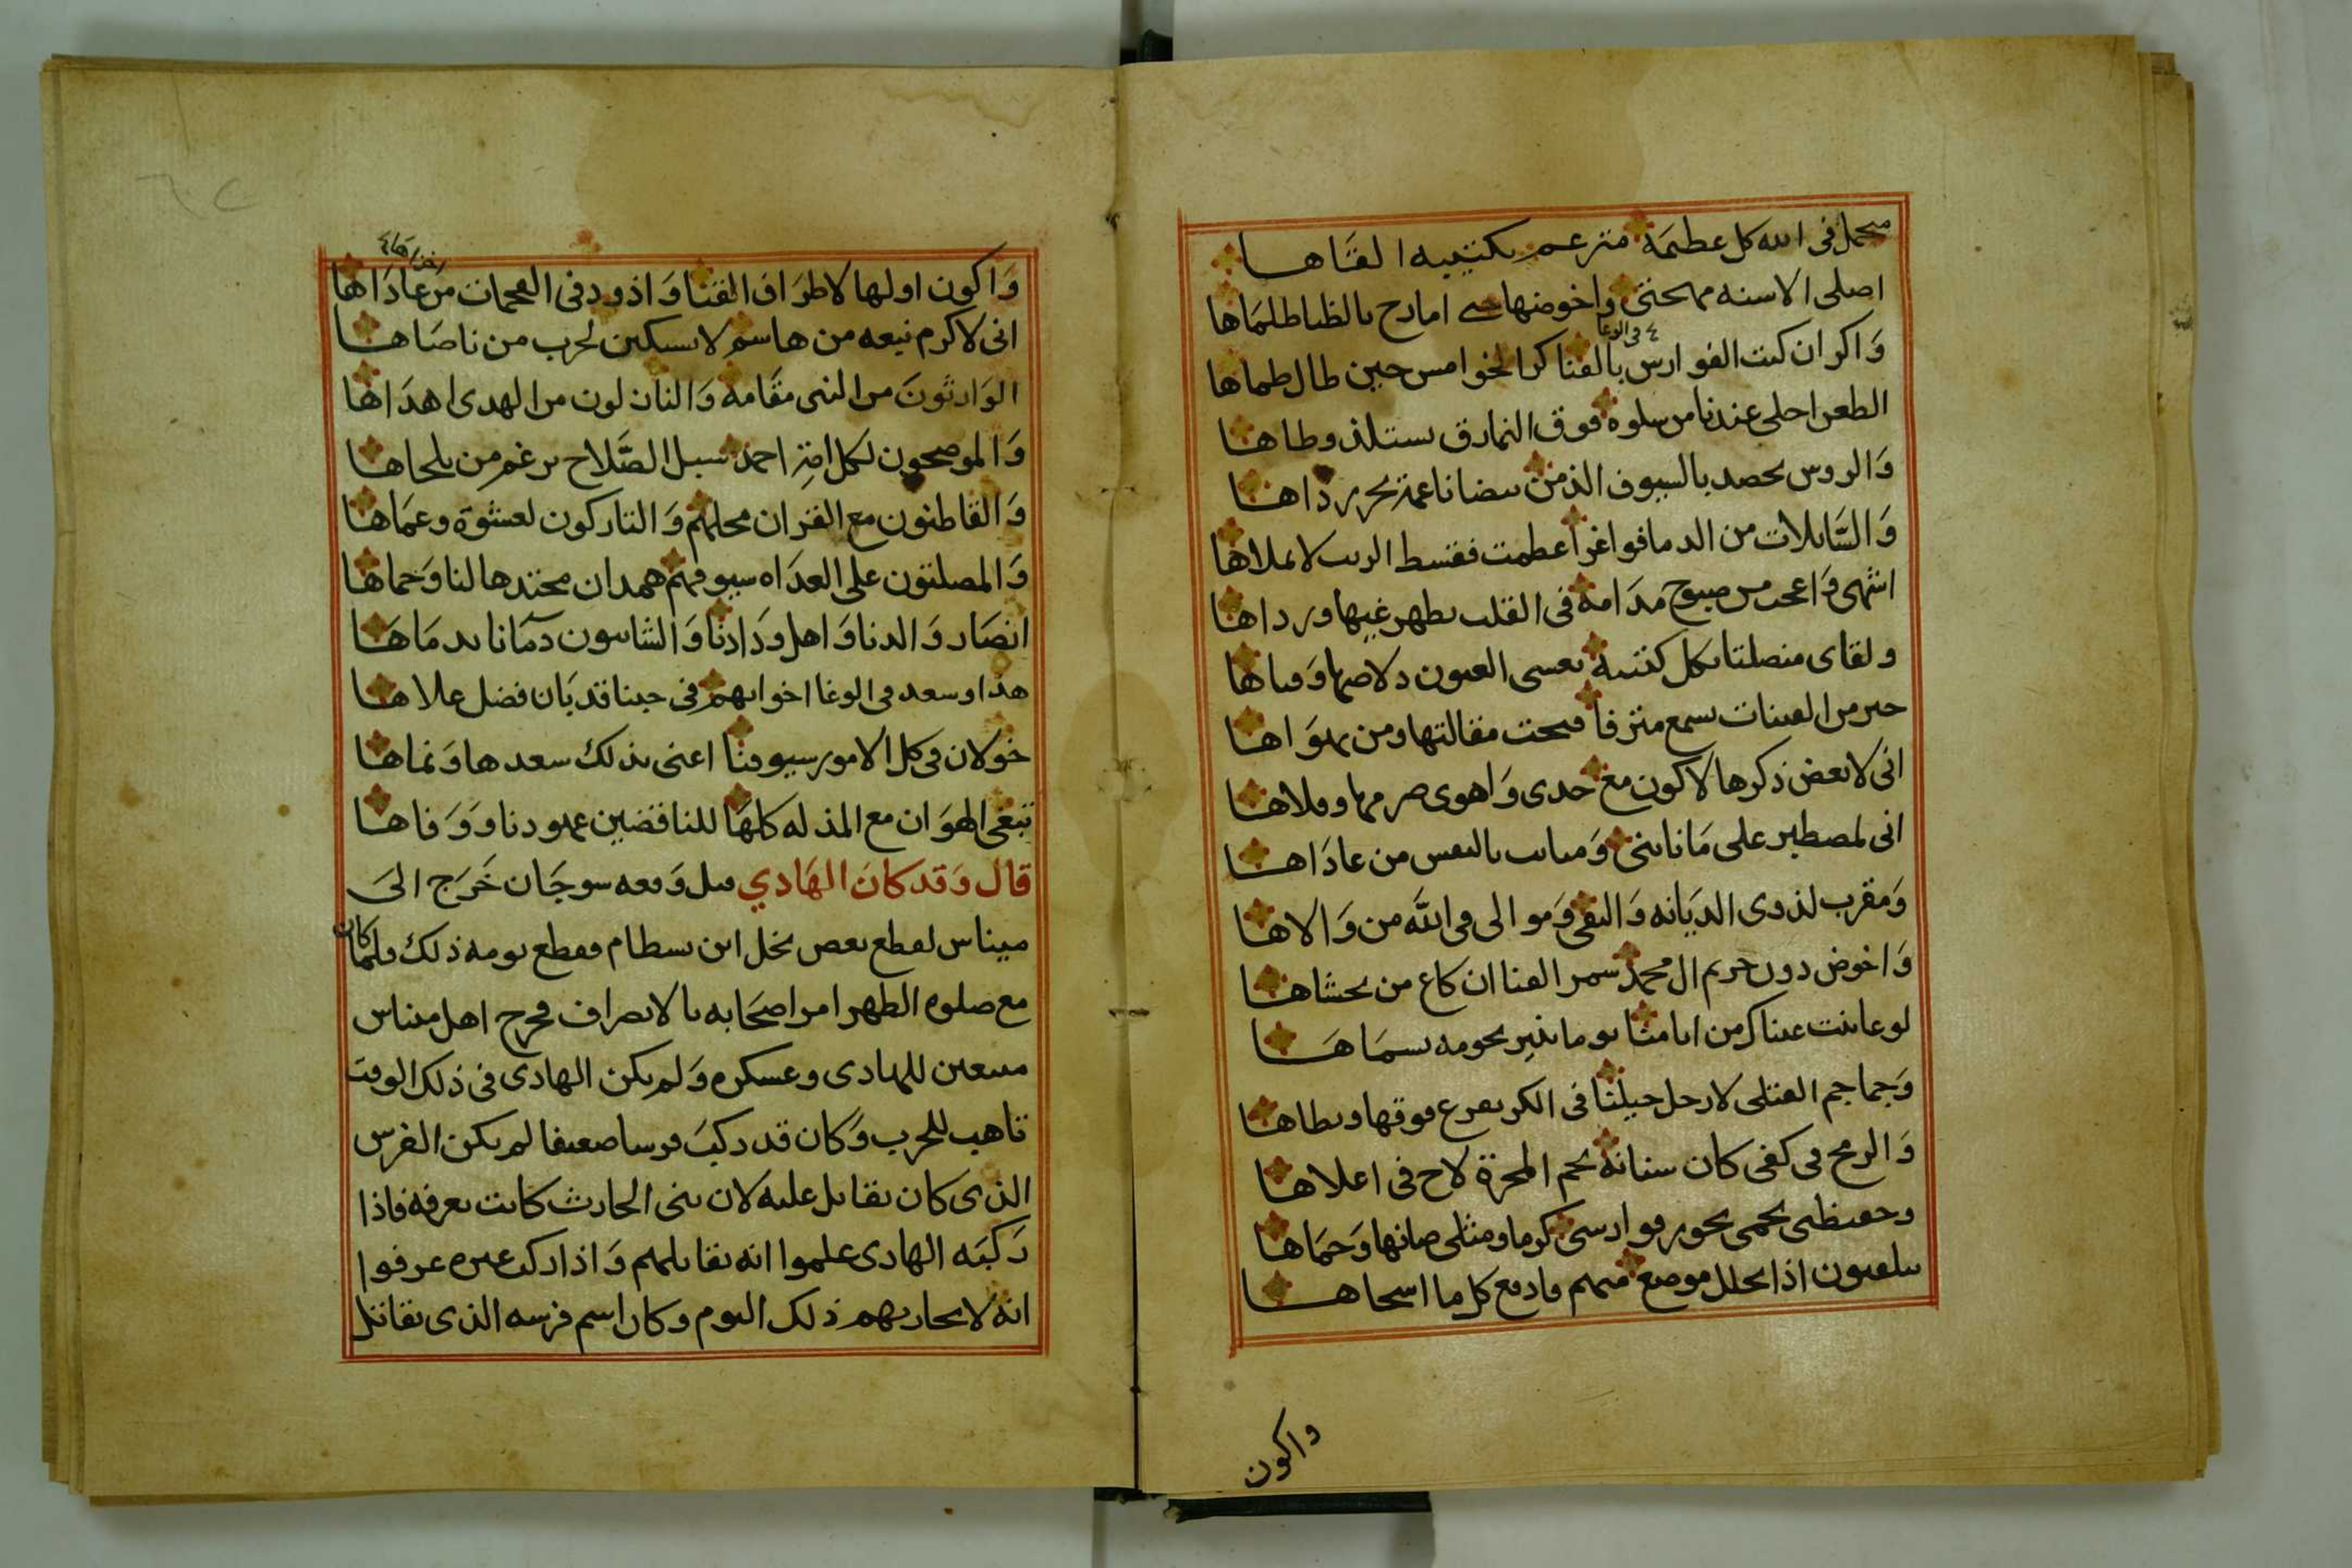 متحمل فى الله كل عظيمة مترعم بكتيبه القاها
اصلى الاسنه مهجتى واخوضها حتى امارح بالظبا ظلماها
فى الوغا
وَاكر ان كبت الفوارس بالقنا كر الخوامس حين طال ظماها
الطعن احلى عندنا من سلوه فوق النمارق يستلذ وطاها
وَالروس تحصد بالسيوف الذ من بيضا ناعمة تجرر رداها
وَالسَّايلات من الدما فواغرا عظمت فقسط الزيت لا يملاها
اشهى وَاعجب من صبوح مدَامة فى القلب يظهر غيها ورداها
ولقاى منصلتا بكل كتيبة تعشى العيون دلاصها وَقباها
خير من القينات تسمع مترفا قبحت مقالتها ومن يهوَاها
انى لابغض ذكرها لاكون مع جدى وَاهوى صرمها وقلاها
انى لمصطبر على مَا نابنى وَمباين بالنفس من عادَاها
وَمقرب لذوى الديَانه وَالتقى وَموالى فى اللَّه من وَالاها
وَاخوض دون حريم ال محمد سمر القنا ان كاع من يخشاها
لو عاينت عيناك من ايامنا يوما يثير نجومه بسمَاهَا
وَجماجم القتلى لارجل خيلنا فى الكر تقرع فوقها وتطاها
وَالرمح فى كفى كان سنانة نجم المجرة لاح فى اعلاها
وحفيظتى تحمى نحور فوارسى كرما ومثلى صانها وَحمَاها
يتلفتون اذا تخلل موضع منهم فادفع كل ما اشجاها
واكون
وَاكون اولها لاطرَاف القنا وَاذود فى الهجمات من عادَاها
انى لاكرم نبعه من هاشم لا يستكين لحرب من ناصَاها
الوَارثونَ من النبى مقَامة وَالنازلون من الهدى اهدَاها
وَالموضحون لكل امة احمد سبل الصَّلاح برغم من يلحاها
وَالقاطنون مع القران محلهم وَالتاركون لعشوة وعمَاها
وَالمصلتون على العدَاه سيوفهم همدان محتدها لنا وَحماها
انصَار وَالدنا وَاهل ودَادنا وَالشايبون دمَانا بدمَاهَا
هذا وسعد فى الوغا اخوانهم فى حينا قد بَان فضل علاها
خولان فى كل الامور سيوفنا اعنى بذلك سعدها وَنماها
تبغى الهوَان مع المذله كلهَا للناقضين عهودنا وَوَفاها
قال وَقد كان الهَادي قبل وَقعه سوحَان خَرَج الىَ
ميناس لقطع بعض نخل ابن بسطام فقطع يومه ذلك فلما كان
مع صلوه الظهر امر اصحَابه بالانصراف فخرج اهل ميناس
متبعين للهادى وعسكره وَلم يكن الهادى فى ذلك الوقت
تاهب للحرب وَكان قد ركبَ فرسا ضعيفا لم يكن الفرس
الذى كان يقاتل عليه لان بنى الحارث كانت تعرفه فاذا
رَكبَه الهادى علموا انه يقاتلهم وَاذا ركب غيره عرفوا
انه لا يحاربهم ذلك اليوم وكان اسم فرسه الذى يقاتل